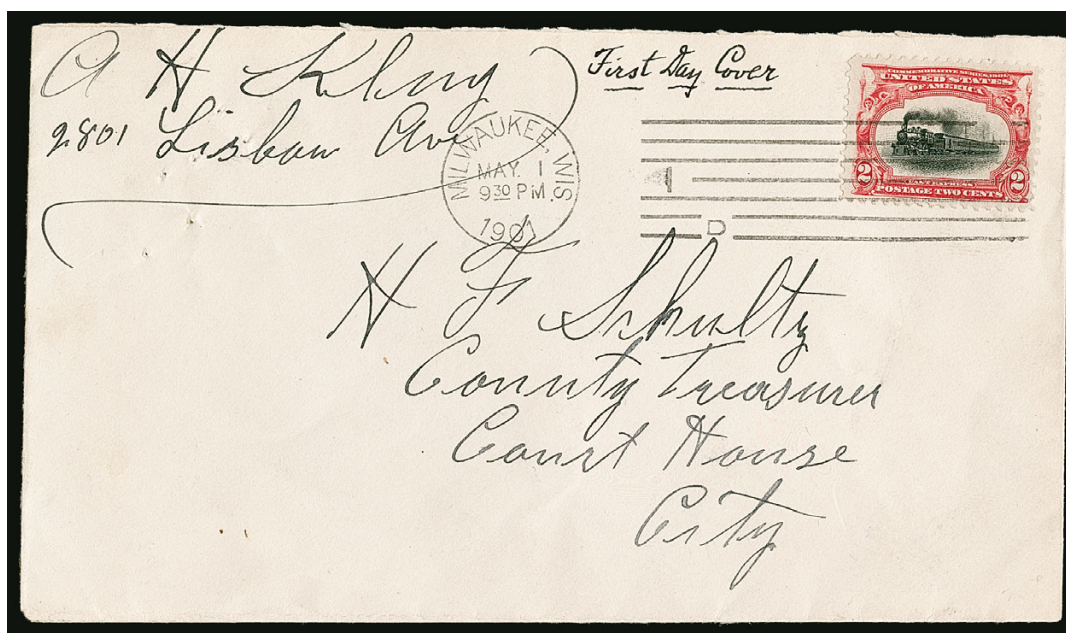 A H Kling
2801 Lisbon Ave
First Day Cover
MILWAUKEE, WIS
MAY. 1
9 30 PM
1901
D
COMMEMORATIVE SERIES, 1901
UNITED STATES
OF AMERICA
FAST EXPRESS
2 2
POSTAGE TWO CENTS
H F Schultz
County Treasurer
Court House
City